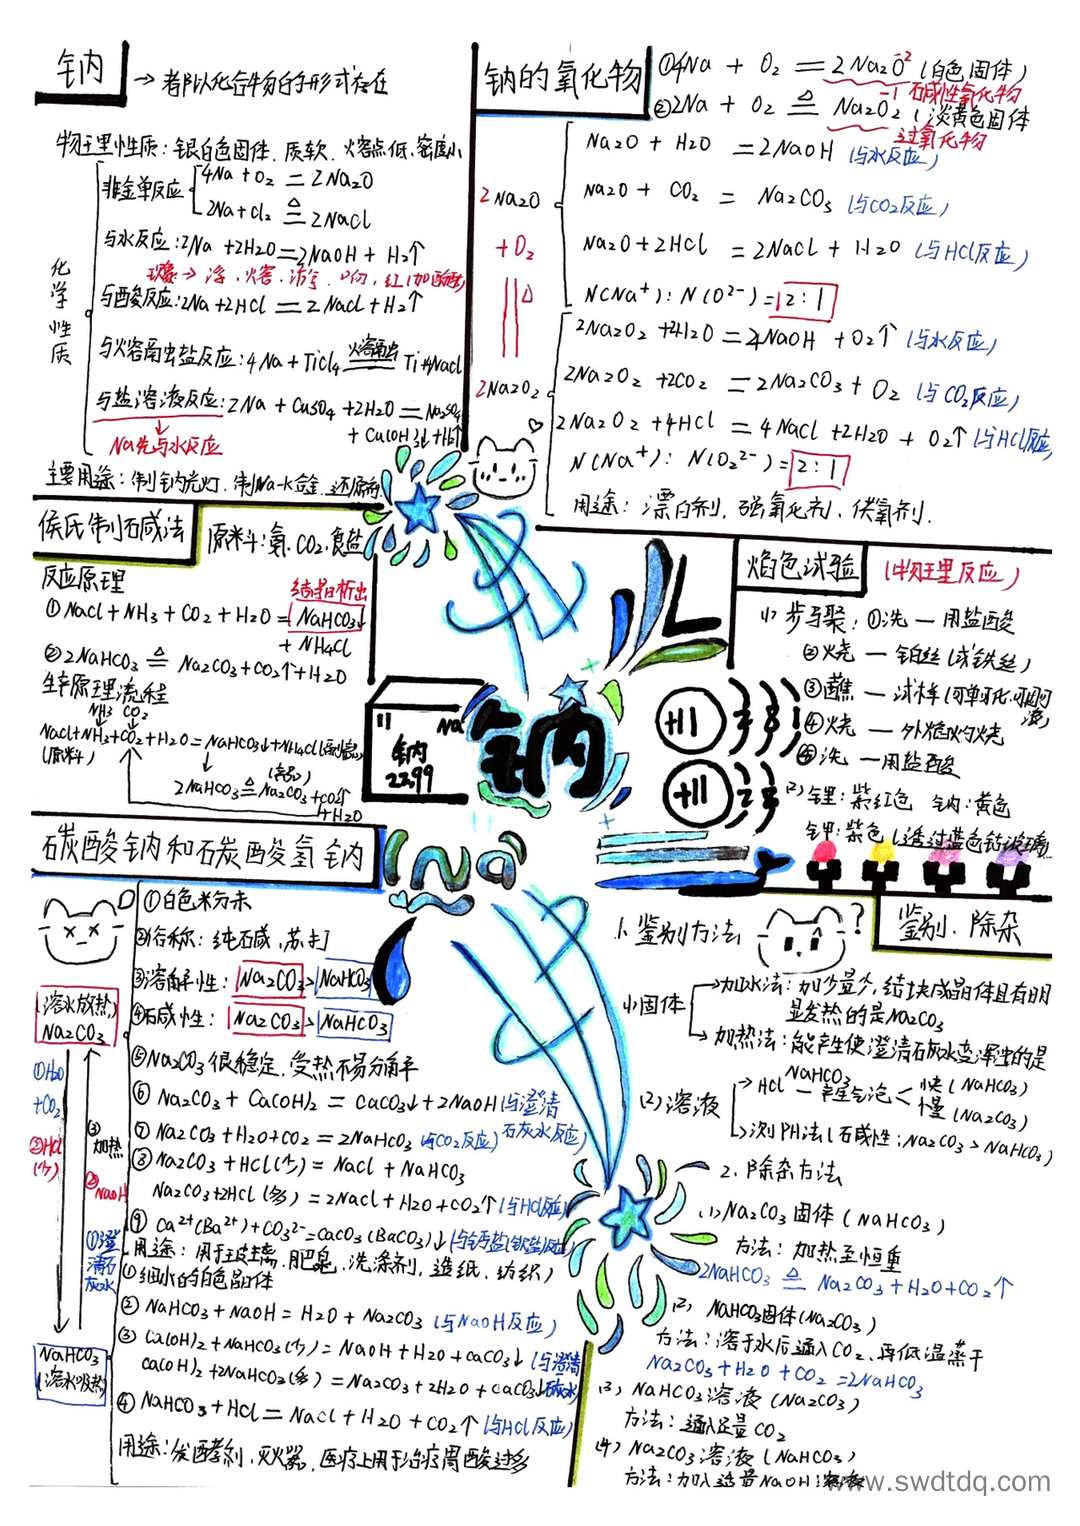 钠
→都以化合物的形式存在
物理性质：银白色固体、质软、火容点低、密度小
化学性质
非金单反应
4Na+O₂=2Na₂O
2Na+Cl₂ ≜ 2NaCl
与水反应:2Na+2H2O=2NaOH+H₂↑
现象→浮、火容、游、响、红(加酚酞)
与酸反应:2Na+2HCl=2NaCl+H₂↑
与火容融盐反应:4Na+TiCl₄ 火容融 Ti+4NaCl
与盐溶液反应:2Na+CuSO₄+2H2O=Na₂SO₄
+Cu(OH)₂↓+H₂↑
Na先与水反应
主要用途：制钠光灯、制Na-K合金、还原剂
钠的氧化物
①4Na + O₂ = 2Na₂O (白色固体)
-2
碱性氧化物
②2Na + O₂ ≜ Na₂O₂ (淡黄色固体
-1
过氧化物
2Na₂O
+O₂
△
2Na₂O₂
Na₂O + H₂O = 2NaOH (与水反应)
Na₂O + CO₂ = Na₂CO₃ (与CO₂反应)
Na₂O+2HCl = 2NaCl + H₂O (与HCl反应)
N(Na⁺):N(O²⁻)=2:1
2Na₂O₂+2H₂O=4NaOH+O₂↑ (与水反应)
2Na₂O₂+2CO₂=2Na₂CO₃+O₂ (与CO₂反应)
2Na₂O₂+4HCl=4NaCl+2H2O+O₂↑ (与HCl反应)
N(Na⁺):N(O₂²⁻)=2:1
用途：漂白剂、强氧化剂、供氧剂.
侯氏制碱法
原料:氨、CO₂、食盐
反应原理
结晶析出
①NaCl+NH₃+CO₂+H₂O=NaHCO₃↓
+NH₄Cl
②2NaHCO₃ ≜ Na₂CO₃+CO₂↑+H₂O
生产原理流程
NH₃ CO₂
NaCl+NH₃+CO₂+H₂O=NaHCO₃↓+NH₄Cl(副产品)
(原料)
(产品)
2NaHCO₃ ≜ Na₂CO₃+CO₂↑
+H₂O
11
Na
钠
22.99
钠
(Na)
+11
+11
焰色试验
(物理反应)
(1)步骤：①洗—用盐酸
②烧—铂丝(或铁丝)
③蘸—试样(可单可化、可固可液)
④烧—外焰灼烧
⑤洗—用盐酸
(2)锂：紫红色 钠：黄色
钾：紫色(透过蓝色钴玻璃
碳酸钠和碳酸氢钠
①白色粉末
②俗称：纯碱、苏打
③溶解性：Na₂CO₃>NaHCO₃
④碱性：Na₂CO₃>NaHCO₃
⑤Na₂CO₃很稳定、受热不易分解
⑥Na₂CO₃+Ca(OH)₂=CaCO₃↓+2NaOH(与澄清石灰水反应)
⑦Na₂CO₃+H₂O+CO₂=2NaHCO₃(与CO₂反应)
③Na₂CO₃+HCl(少)=NaCl+NaHCO₃
Na₂CO₃+2HCl(多)=2NaCl+H₂O+CO₂↑(与HCl反应)
⑨Ca²⁺(Ba²⁺)+CO₃²⁻=CaCO₃(BaCO₃)↓(与钙盐(钡盐)反应)
用途：用于玻璃、肥皂、洗涤剂、造纸、纺织)
(溶水放热)
Na₂CO₃
①H₂O
+CO₂
②HCl
(少)
③加热
②NaOH
①澄清石灰水
NaHCO₃
(溶水吸热)
①细小的白色晶体
②NaHCO₃+NaOH=H₂O+Na₂CO₃(与NaOH反应)
③Ca(OH)₂+NaHCO₃(少)=NaOH+H2O+CaCO₃↓(与澄清石灰水)
Ca(OH)₂+2NaHCO₃(多)=Na₂CO₃+2H₂O+CaCO₃↓
④NaHCO₃+HCl=NaCl+H₂O+CO₂↑(与HCl反应)
用途：发酵剂、灭火器、医疗上用于治疗胃酸过多
鉴别、除杂
?
1、鉴别方法
(1)固体
→加水法：加少量少,结块成晶体且有明
显发热的是Na₂CO₃
→加热法：能产生使澄清石灰水变浑浊的是
NaHCO₃
(2)溶液
→HCl—产生气泡<快(NaHCO₃)
慢(Na₂CO₃)
→测PH法(碱性:Na₂CO₃>NaHCO₃)
2、除杂方法
(1)Na₂CO₃固体(NaHCO₃)
方法：加热至恒重
2NaHCO₃ ≜ Na₂CO₃+H₂O+CO₂↑
(2)NaHCO₃固体(Na₂CO₃)
方法：溶于水后通入CO₂、再低温蒸干
Na₂CO₃+H₂O+CO₂=2NaHCO₃
(3)NaHCO₃溶液(Na₂CO₃)
方法：通入足量CO₂
(4)Na₂CO₃溶液(NaHCO₃)
方法：加入适量NaOH溶液
www.swdtdq.com